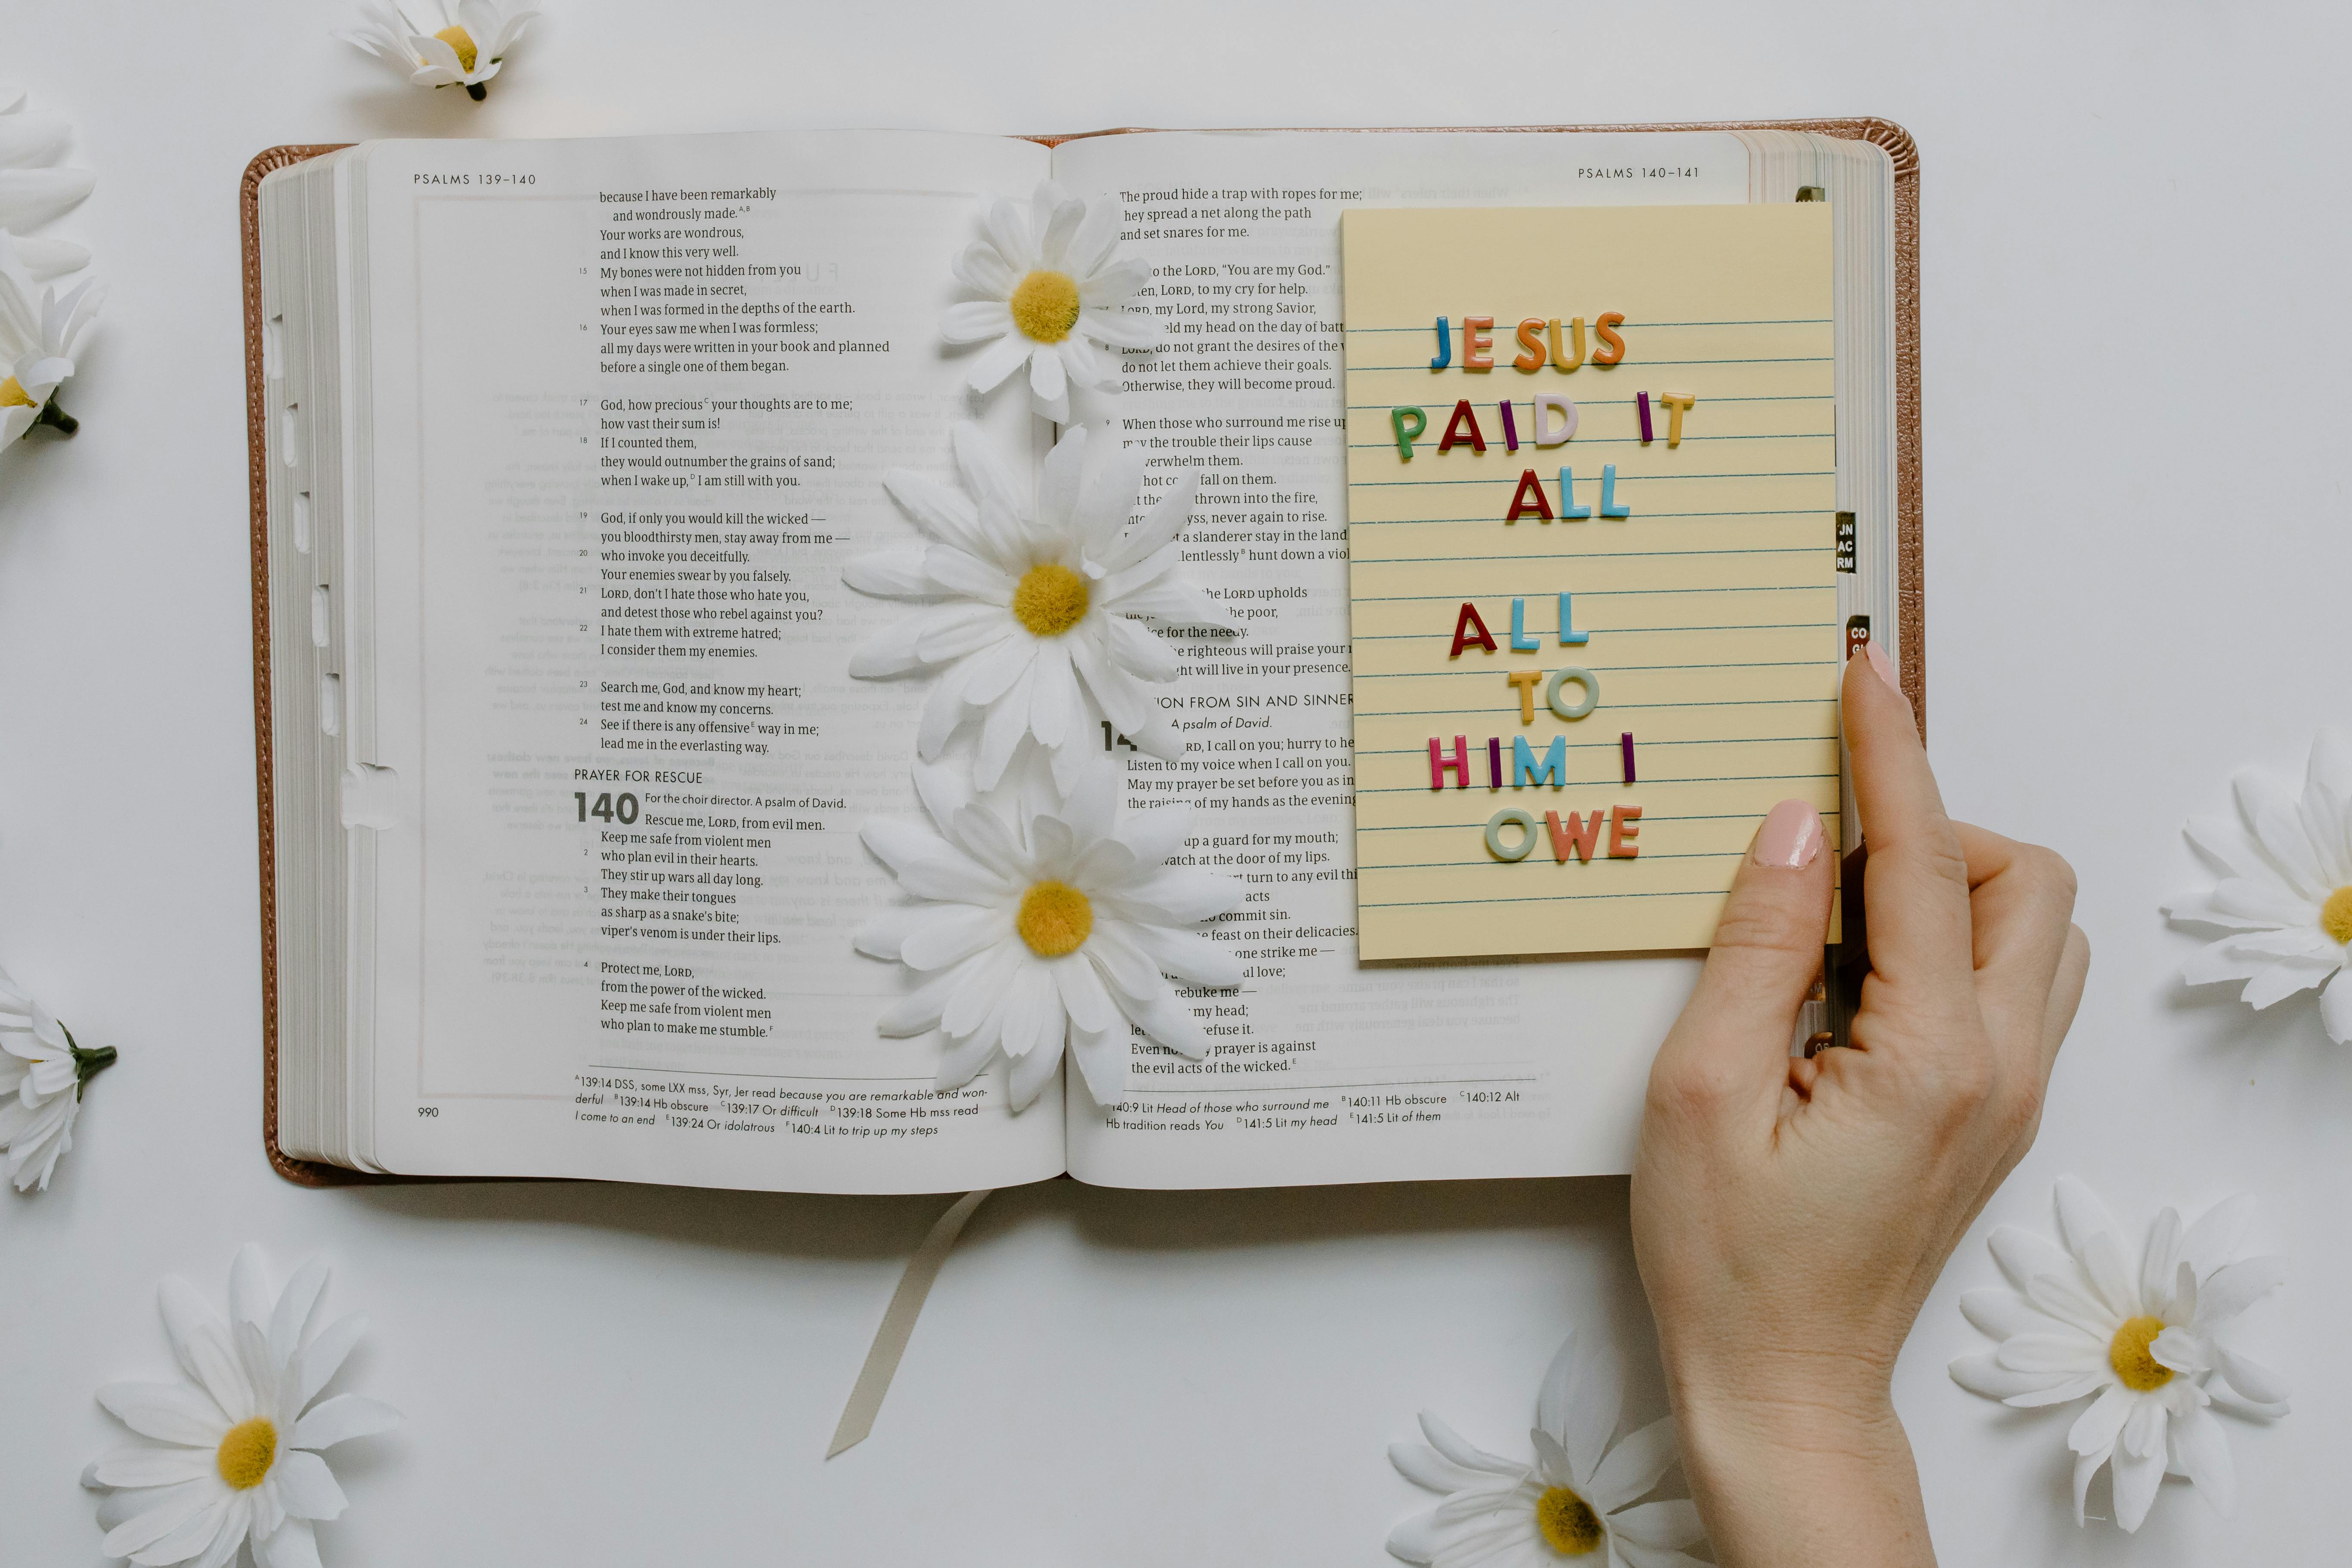 PSALMS 139–140
because I have been remarkably
and wondrously made.A,B
Your works are wondrous,
and I know this very well.
15 My bones were not hidden from you
when I was made in secret,
when I was formed in the depths of the earth.
16 Your eyes saw me when I was formless;
all my days were written in your book and planned
before a single one of them began.
17 God, how preciousC your thoughts are to me;
how vast their sum is!
18 If I counted them,
they would outnumber the grains of sand;
when I wake up,D I am still with you.
19 God, if only you would kill the wicked —
you bloodthirsty men, stay away from me —
20 who invoke you deceitfully.
Your enemies swear by you falsely.
21 LORD, don't I hate those who hate you,
and detest those who rebel against you?
22 I hate them with extreme hatred;
I consider them my enemies.
23 Search me, God, and know my heart;
test me and know my concerns.
24 See if there is any offensiveE way in me;
lead me in the everlasting way.
PRAYER FOR RESCUE
140 For the choir director. A psalm of David.
Rescue me, LORD, from evil men.
Keep me safe from violent men
2 who plan evil in their hearts.
They stir up wars all day long.
3 They make their tongues
as sharp as a snake's bite;
viper's venom is under their lips.
4 Protect me, LORD,
from the power of the wicked.
Keep me safe from violent men
who plan to make me stumble.F
A139:14 DSS, some LXX mss, Syr, Jer read because you are remarkable and won-
derful B139:14 Hb obscure C139:17 Or difficult D139:18 Some Hb mss read
I come to an end E139:24 Or idolatrous F140:4 Lit to trip up my steps
990
PSALMS 140–141
The proud hide a trap with ropes for me;
hey spread a net along the path
and set snares for me.
to the LORD, "You are my God."
LORD, to my cry for help.
LORD, my Lord, my strong Savior,
my head on the day of
8 LORD, do not grant the desires of the
do not let them achieve their goals.
Otherwise, they will become proud.
9 When those who surround me rise
may the trouble their lips cause
overwhelm them.
hot fall on them.
thrown into the fire,
never again to rise.
a slanderer stay in the land
B hunt down a
the LORD upholds
the poor,
for the needy.
righteous will praise your
will live in your presence.
FROM SIN AND
A psalm of David.
I call on you; hurry to
Listen to my voice when I call on you.
May my prayer be set before you as
the raising of my hands as the evening
up a guard for my mouth;
watch at the door of my lips.
turn to any evil
acts
commit sin.
feast on their delicacies.
one strike me —
love;
rebuke me —
my head;
refuse it.
Even prayer is against
the evil acts of the wicked.E
140:9 Lit Head of those who surround me B140:11 Hb obscure C140:12 Alt
Hb tradition reads You D141:5 Lit my head E141:5 Lit of them
JESUS
PAID IT
ALL
ALL
TO
HIM I
OWE
JN
AC
RM
CO